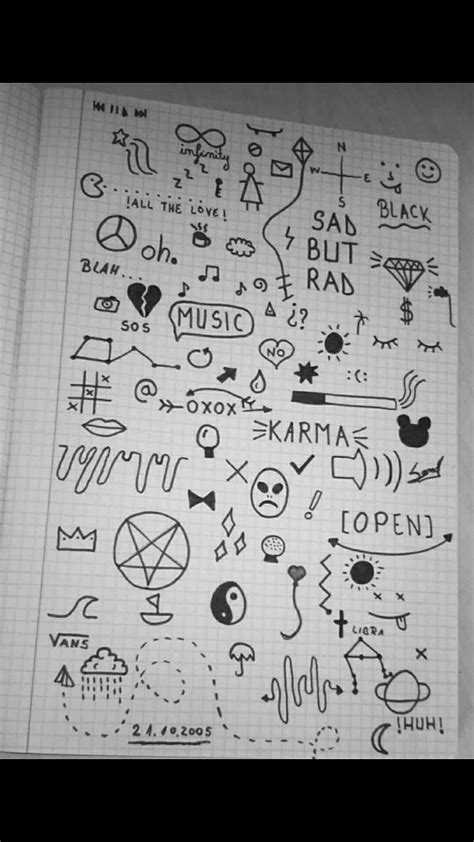 infinity
N
W E
S
z z z
!ALL THE LOVE!
BLACK
SAD
BUT
RAD
oh.
BLAH...
SOS
MUSIC
¿?
$
NO
:(:
x
x
x
@
OXOX
KARMA
Sound
[OPEN]
LIBRA
VANS
21.10.2005
!HUH!